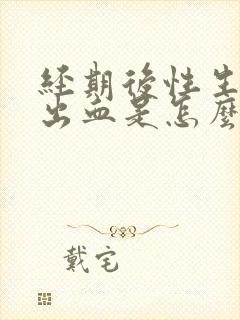 經期後性生
出血是怎麼
戴宅